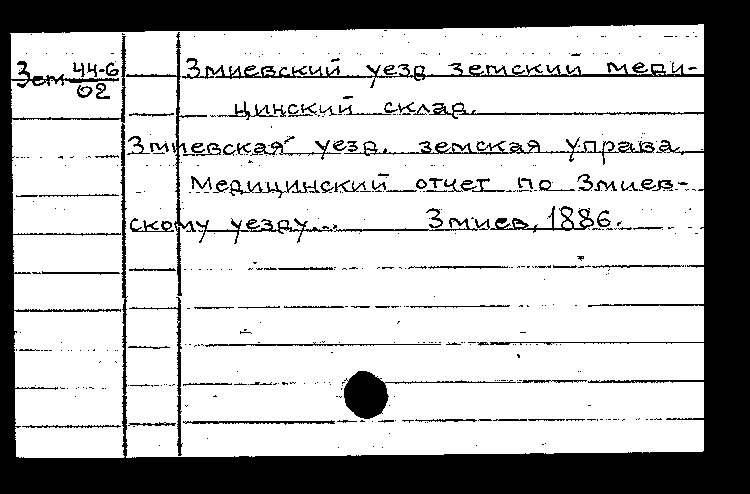 Зем 44-6/02
Змиевский уезд земский меди-
цинский склад.
Змиевская уезд. земская управа.
Медицинский отчет по Змиев-
скому уезду... Змиев, 1886.